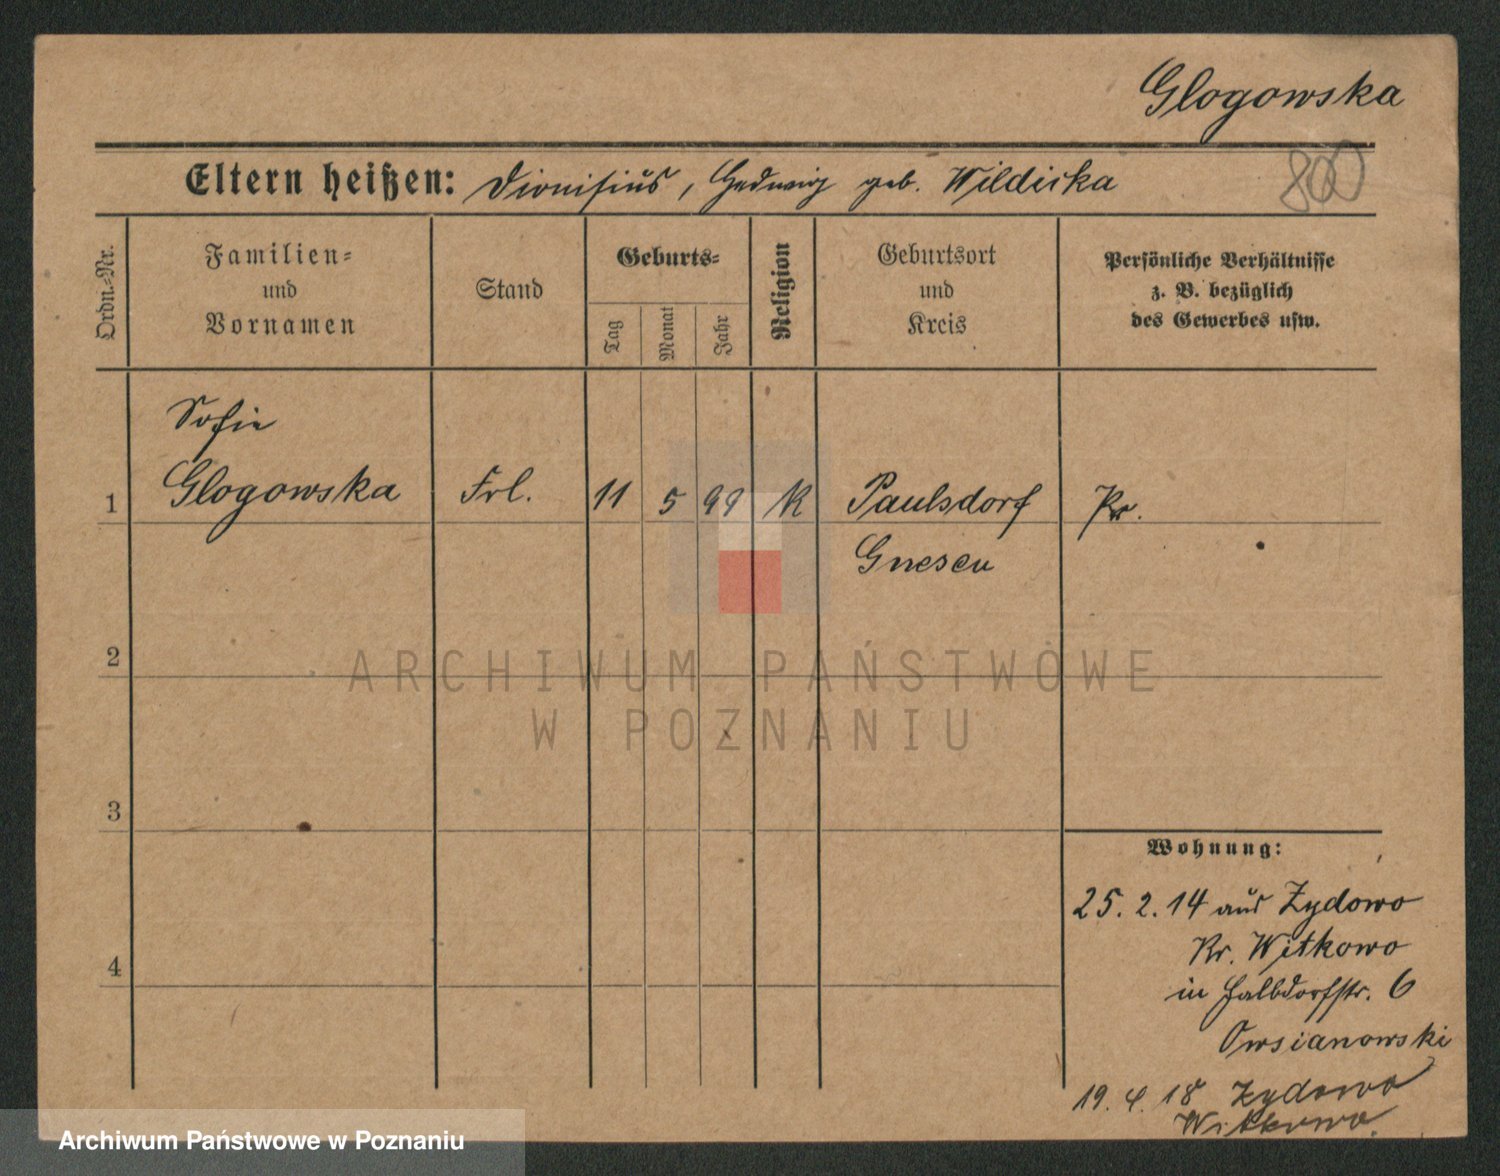 Glogowska
800
Eltern heißen: Dionisius, Hedwig geb. Wildicka
Ordn.-Nr.
Familien-
und
Vornamen
Stand
Geburts-
Tag
Monat
Jahr
Religion
Geburtsort
und
Kreis
Persönliche Verhältnisse
z. B. bezüglich
des Gewerbes usw.
Sofie
1 Glogowska Frl. 11 5 99 K Paulsdorf Pr.
Gnesen
2
3
4
Wohnung:
25. 2. 14 aus Zydowo
Kr. Witkowo
in Halbdorfstr. 6
Owsianowski
19. 4. 18 Zydowo
Witkowo.
ARCHIWUM PAŃSTWOWE
W POZNANIU
Archiwum Państwowe w Poznaniu